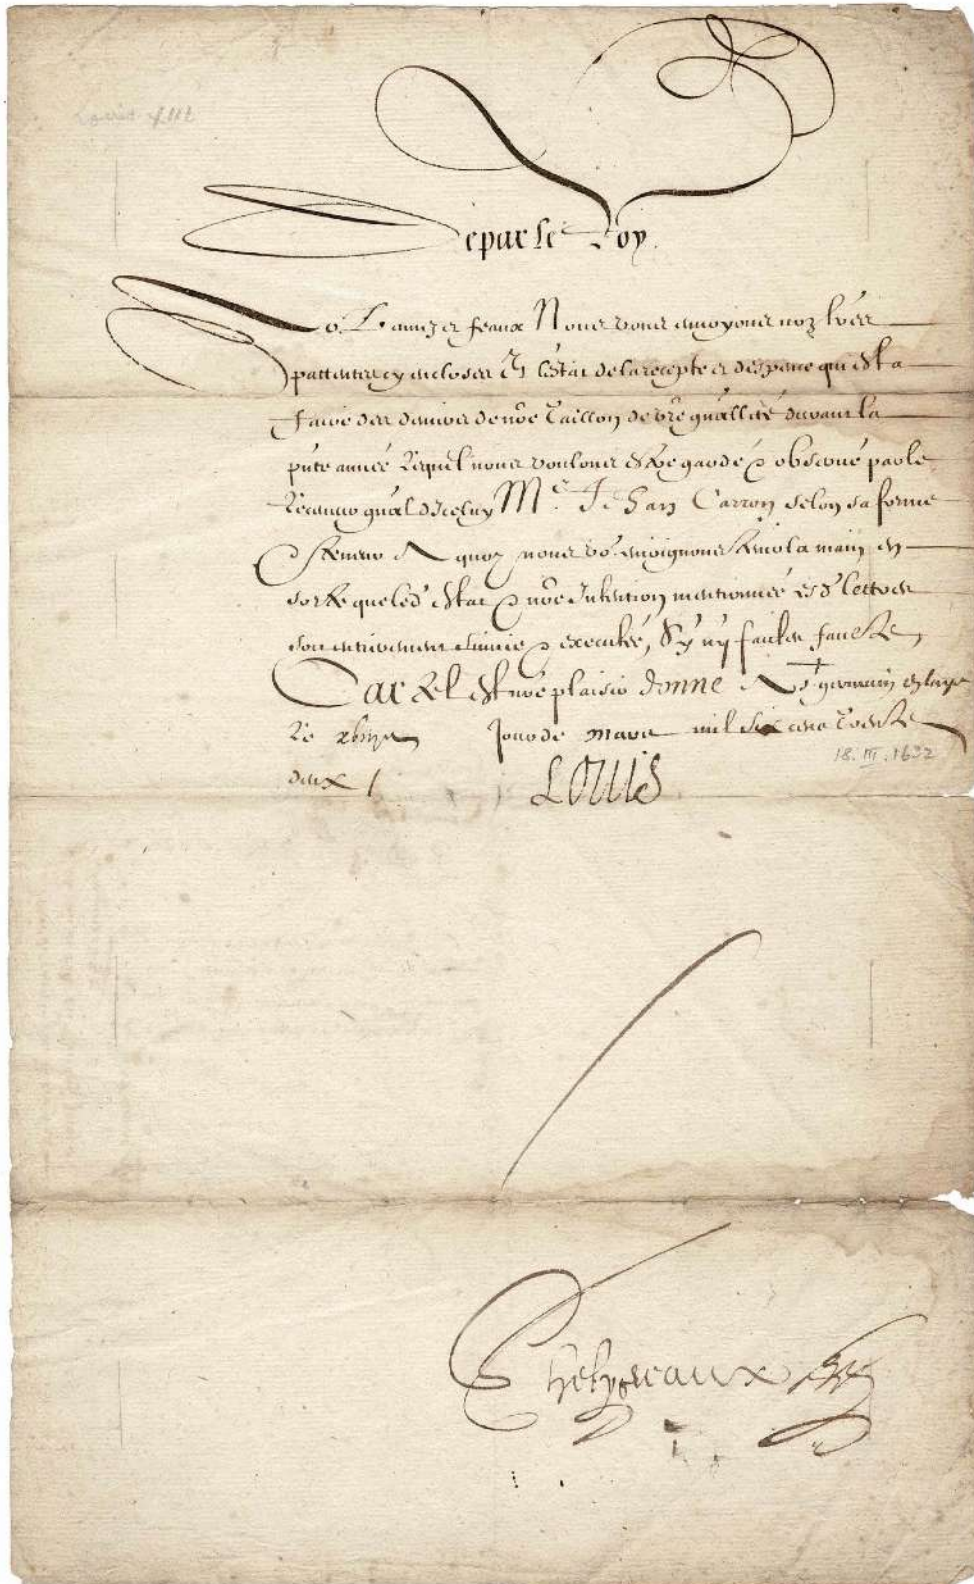 Louis XIII
De par le Roy.
Noz amez et feaux Nous vous envoyons noz lres
pattentes cy encloses Et l'estat de la recepte et despence qui est a
faire des deniers de nre Taillon de vre gnallité durant la
pnte année Lequel nous voulons estre gardé & observé par le
Receveur gnal d'iceluy Me. Jehan Carron selon sa forme
& teneur A quoy nous vo. enjoignons tenir la main en
sorte que led. estat & nre intention mentionnée esd. lettres
soit entierement suivie & executée, Sy n'y faictes faulte
Car tel est nre plaisir donné A St germain en laye
Le xviije Jour de mars mil six cens trente
18. III. 1632
deux /
Louis
Phelypeaux